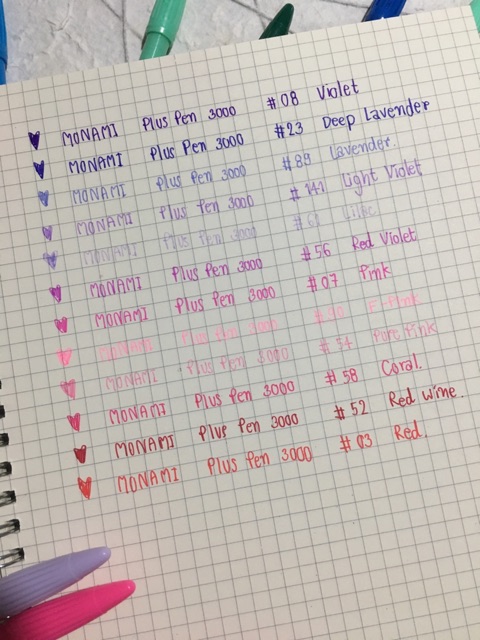 MONAMI Plus Pen 3000 #08 Violet
MONAMI Plus Pen 3000 #23 Deep Lavender
MONAMI Plus Pen 3000 #89 Lavender
MONAMI Plus Pen 3000 #141 Light Violet
MONAMI Plus Pen 3000 Lilac
MONAMI Plus Pen 3000 #56 Red Violet
MONAMI Plus Pen 3000 #07 Pink
MONAMI Plus Pen 3000 F-Pink
MONAMI Plus Pen 3000 #54 Pure Pink
MONAMI Plus Pen 3000 #58 Coral.
MONAMI Plus Pen 3000 #52 Red wine.
MONAMI Plus Pen 3000 #03 Red.